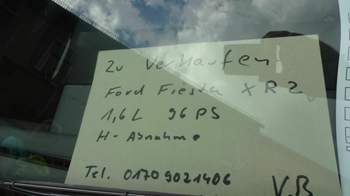 Zu Verkaufen
Ford Fiesta XR2
1,6L 96PS
H-Abnahme
Tel. 01709021406
V.B